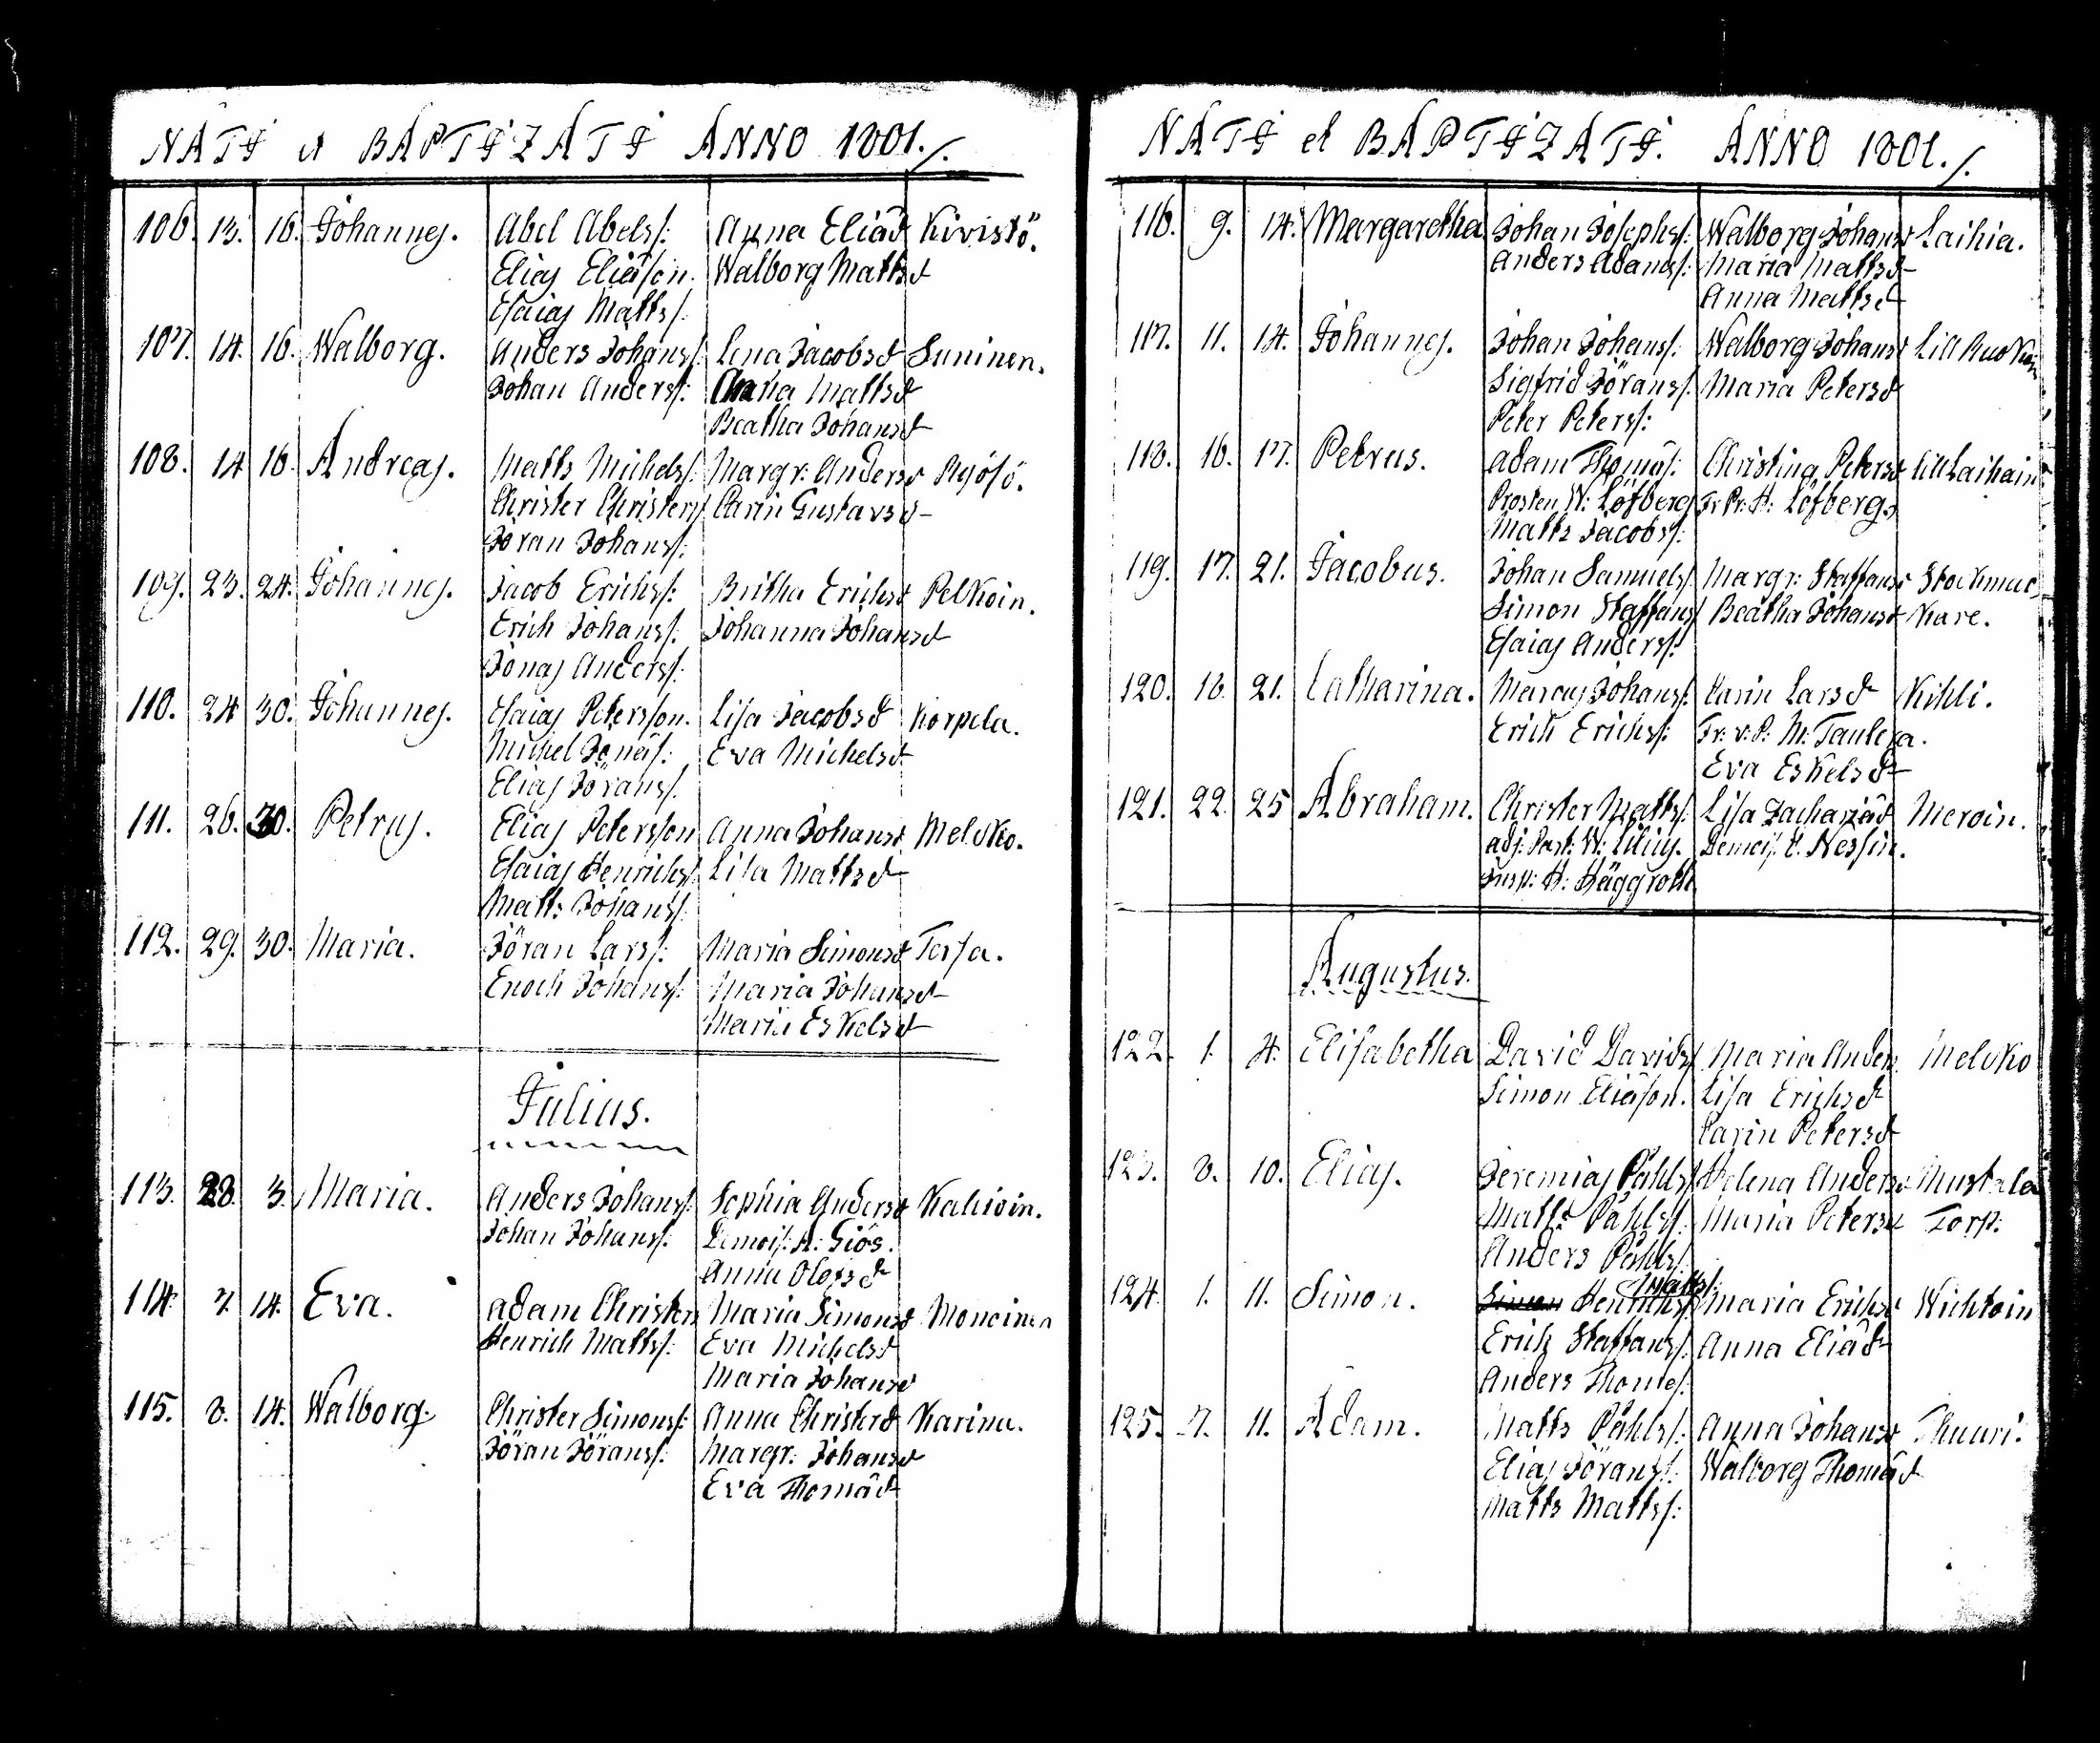 NATI et BAPTIZATI ANNO 1801./.
106. 13. 16. Johannes. Abel Abelss: Anna Eliæd Kivistö.
Elias Eliæson. Walborg Mattsd
Esaias Mattss:
107. 14. 16. Walborg. Anders Johanss: Lena Jacobsd Suninen.
Johan Anderss: Anna Mattsd
Beatha Johansd
108. 14 16. Andreas. Matts Michelss: Margr: Andersd Ryösö.
Christer Christerss Carin Gustavsd
Jöran Johanss:
109. 23. 24. Johannes. Jacob Erichss: Britha Erichsd Pelkoin.
Erich Johanss. Johanna Johansd
Jonas Anderss:
110. 24 30. Johannes. Esaias Petersson. Lisa Jacobsd Korpela.
Michel Jonæs: Eva Michelsd
Elias Jöranss.
111. 26. 30. Petrus. Elias Petersson Anna Johansd Meloko.
Esaias Henrichss Lisa Mattsd
Matts Johanss.
112. 29. 30. Maria. Jöran Larss: Maria Simonsd Torsa.
Enoch Johanss: Maria Johansd
Maria Eskelsd
Julius.
113. 28. 3. Maria. Anders Johanss: Sophia Andersd Kakioin.
Johan Johanss. Demois: A: Giös.
Anna Olofsd
114. 7. 14. Eva. Adam Christers Maria Simonsd Monoinen
Henrich Mattss: Eva Michelsd
Maria Johansd
115. 8. 14. Walborg. Christer Simonss: Anna Christersd Karina.
Jöran Jöranss: Margr: Johansd
Eva Thomæd
NATI et BAPTIZATI. ANNO 1801./.
116. 9. 14. Margaretha Johan Josephss: Walborg Johansd Laihia.
Anders Adamss: Maria Mattsd
Anna Mattsd
117. 11. 14. Johannes. Johan Johanss: Walborg Johansd Lill
Sigfrid Jöranss. Maria Petersd
Peter Peterss:
118. 16. 17. Petrus. Adam Thomæs: Christina Petersd Lill Laihain
Prosten W: Löfberg Fr. Pr: H: Löfberg
Matts Jacobss:
119. 17. 21. Jacobus. Johan Samuelss. Margr: Staffansd Stockmac
Simon Staffanss Beatha Johansd kare.
Esaias Anderss:
120. 16. 21. Catharina. Marcus Johanss: Carin Larsd Kihli.
Erich Erichss: Fr: v: P: M: Taulera.
Eva Eskelsd
121. 22. 25 Abraham. Christer Mattss. Lisa Zachariæd Meroin.
adj: Past: W: Lilius. Demois. C. Nessin.
Insp: H: Häggroth
Augustus.
122. 1. 4. Elisabetha David Davidss Maria Anders Meloko
Simon Eliæson. Lisa Erichsd
Carin Petersd
123. 8. 10. Elias. Jeremias Påhlss Helena Andersd Mustala
Matts Påhlss: Maria Petersd Torp.
Anders Påhlss.
124. 1. 11. Simon. Simon Henrichss. Mattss: Maria Erichsd Wichtoin
Erich Staffanss. Anna Eliæd
Anders Thomæs.
125. 7. 11. Adam. Matts Påhlss: Anna Johansd Thuuri.
Elias Jöranss: Walborg Thomæd
Matts Mattss: